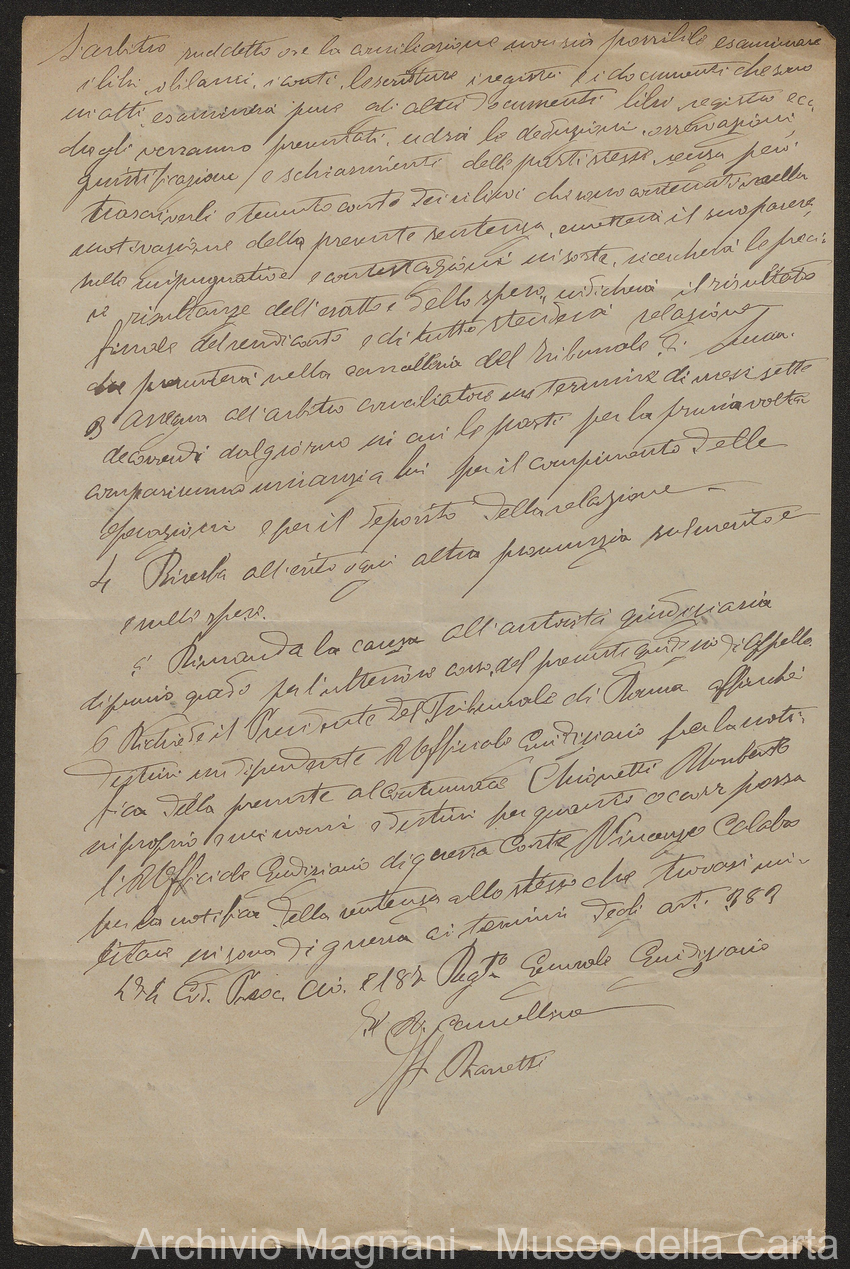 L'arbitro suddetto ove la conciliazione non sia possibile esaminare
i libri, i bilanci, i conti, le scritture i registri e i documenti che sono
in atti, esaminerà pure gli altri documenti libri, registri ecc.
che gli verranno presentati, udrà le deduzioni, osservazioni,
giustificazione e schiarimenti delle parti stesse, senza però
trascriverli e tenuto conto dei rilievi che sono contenuti nella
motivazione della presente sentenza, emetterà il suo parere
sulle impugnative e contestazioni insorte, ricercherà le preci-
se risultanze dell'esatto e dello speso, indicherà il risultato
finale del rendiconto e di tutto stenderà relazione
che presenterà nella cancelleria del Tribunale di
3 Assegna all'arbitro conciliatore un termine di mesi sette
decorrendi dal giorno in cui le parti per la prima volta
compariranno innanzi a lui per il compimento delle
operazioni e per il deposito della relazione —
4 Riserba all'esito ogni altra pronunzia sul merito e
e sulle spese.
5 Rimanda la causa all'autorità giudiziaria
di primo grado per l'ulteriore corso del presente giudizio di appello
6 Richiede il Presidente del Tribunale di Roma affinchè
destini un dipendente Ufficiale Giudiziario per la noti-
fica della presente al contumace Chionetti Umberto
in proprio e nei nomi e destini per quanto occorr possa
l'Ufficiale Giudiziario di questa Corte Vincenzo Calabro
per la notifica della sentenza allo stesso che trovasi mi-
litare in zona di guerra ai termini degli art. 383
474 Cod. Proc. Civ. e 187 Reg.to Generale Giudiziario
Il V. Cancelliere
f.to
Archivio Magnani - Museo della Carta